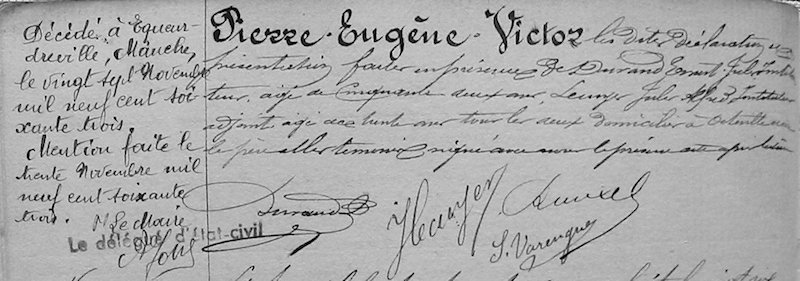 Décédé à Equeur-
dreville, Manche,
le vingt sept Novembre
mil neuf cent soi-
xante trois.
Mention faite le
trente Novembre mil
neuf cent soixante
trois.
Le Maire
Le délégué d'état-civil
Pierre-Eugène-Victor les dites déclaration et
présentation faites en présence de Durand Ernest Jules Institu-
teur, âgé de cinquante deux ans, Jules Alfred Instituteur
adjoint âgé de ans tous les deux domiciliés à
le père et les témoins signé avec nous le présent acte après lecture
Durand
S. Varengue